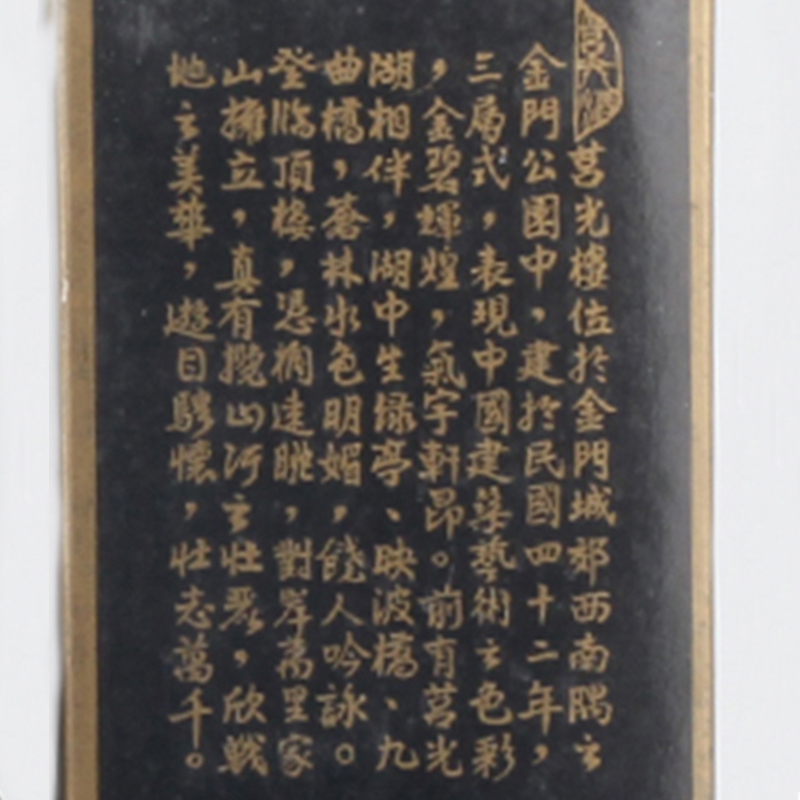 莒光樓
莒光樓位於金門城郊西南隅之
金門公園中，建於民國四十二年，
三層式，表現中國建築藝術之色彩
，金碧輝煌，氣宇軒昂。前有莒光
湖相伴，湖中生綠亭、映波橋、九
曲橋，蒼林水色明媚，饒人吟詠。
登臨頂樓，憑欄遠眺，對岸萬里家
山擁立，真有攬山河之壯烈，欣戰
地之美華，遊目騁懷，壯志萬千。